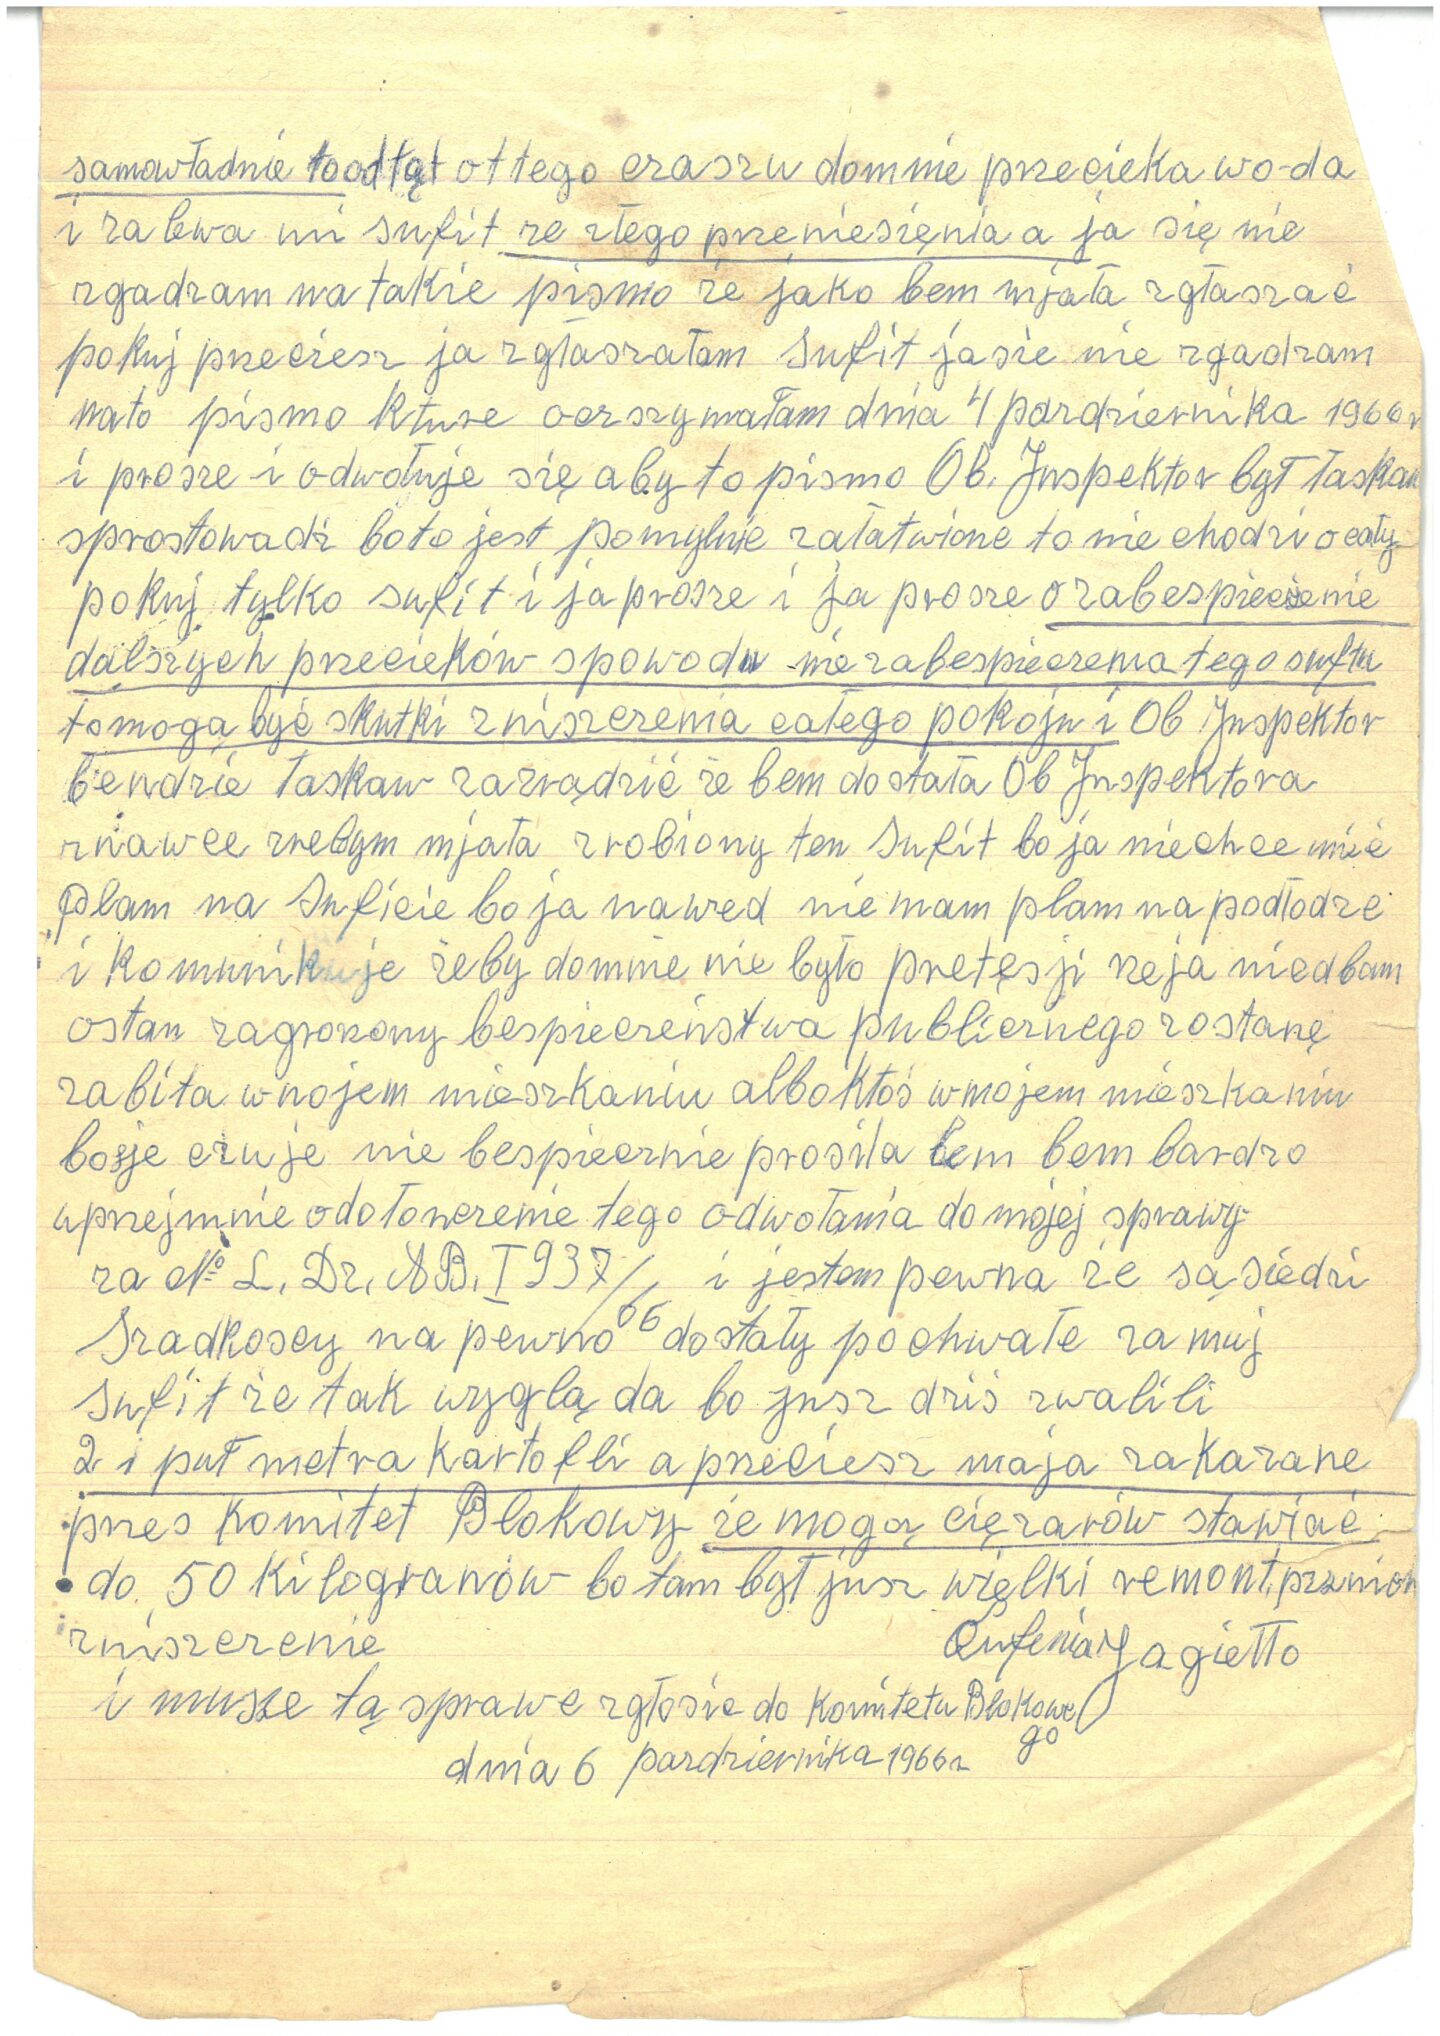 samowładnie to odtąt ot tego czaszu domnie przecieka wo-da
i zalewa mi sufit ze złego przeniesięnia a ja się nie
zgadzam na takie pismo że jako bem mjała zgłaszać
pokuj przeciesz ja zgłaszałam sufit jasie nie zgadzam
nato pismo kture oczszymałam dnia 4 pazdziernika 1966 r
i prosze i odwołuje się aby to pismo Ob. Jnspektor był łaskaw
sprostowadź boto jest pomylnie załatwione to nie chodzi o cały
pokuj tylko sufit i ja prosze i ja prosze o zabespieczenie
dalszych przecieków spowodu nie zabespieczenia tego sufitu
tomogą być skutki zniszczenia całego pokoju i Ob Jnspektor
bendzie łaskaw zarządzić że bem dostała Ob Jnspektora
znawce żebym mjała zrobiony ten sufit bo ja niechce mieć
plam na suficie bo ja nawed nie mam plam na podłodze
i komunikuje żeby domnie nie było pretęsji że ja niedbam
ostan zagrożony bespieczeństwa publicznego zostanę
zabita wnojem mieszkaniu albo ktoś wmojem mieszkaniu
bosje czuje nie bespiecznie prosiła bem bem bardzo
uprzejmnie odołonczenie tego odwołania do mojej sprawy
za № L. Dz. AB. I 937/66 i jestem pewna że sąsiedzi
Szadkoscy na pewno dostały pochwałe za muj
sufit że tak wyglą da bo jusz dziś zwalili
2 i puł metra kartofli a przeciesz maja zakazane
przes Komitet Blokowy że mogą ciężarów stawiać
do 50 kilogranów bo tam był jusz wielki remont
zniszczenie Eufenia Jagiełło
i musze tą sprawe zgłosic do Komitetu Blokowe
go
dnia 6 pazdziernika 1966 r